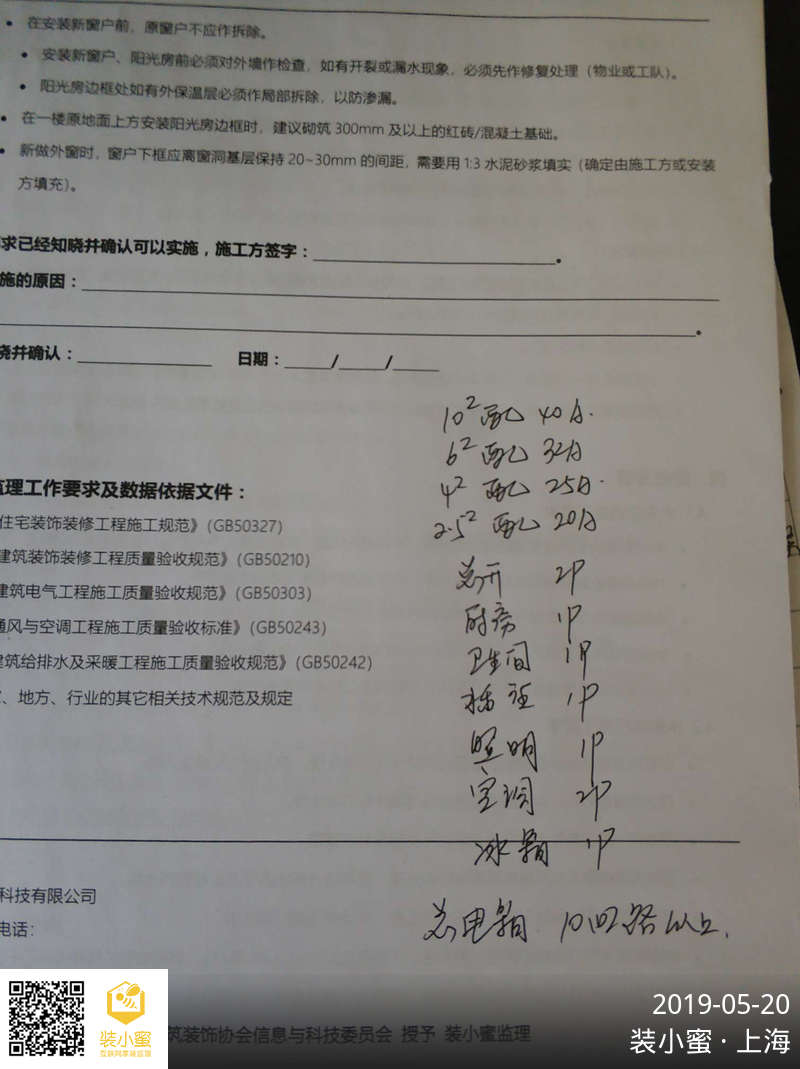 在安装新窗户前，原窗户不应作拆除。
安装新窗户、阳光房前必须对外墙作检查，如有开裂或漏水现象，必须先作修复处理（物业或工队）。
阳光房边框处如有外保温层必须作局部拆除，以防渗漏。
在一楼原地面上方安装阳光房边框时，建议砌筑 300mm 及以上的红砖/混凝土基础。
新做外窗时，窗户下框应离窗洞基层保持 20~30mm 的间距，需要用 1:3 水泥砂浆填实（确定由施工方或安装
方填充）。
求已经知晓并确认可以实施，施工方签字：
施的原因：
晓并确认： 日期： / /
10² 配 40A.
6² 配 32A
4² 配 25A.
2.5² 配 20A
监理工作要求及数据依据文件：
住宅装饰装修工程施工规范》（GB50327）
建筑装饰装修工程质量验收规范》（GB50210）
建筑电气工程施工质量验收规范》（GB50303）
通风与空调工程施工质量验收标准》（GB50243）
建筑给排水及采暖工程施工质量验收规范》（GB50242）
、地方、行业的其它相关技术规范及规定
总开 2P
厨房 1P
卫生间 1P
插座 1P
照明 1P
空调 2P
冰箱 1P
科技有限公司
电话：
总电箱 10回路以上.
筑装饰协会信息与科技委员会 授予 装小蜜监理
装小蜜
互联网家装监理
2019-05-20
装小蜜 · 上海